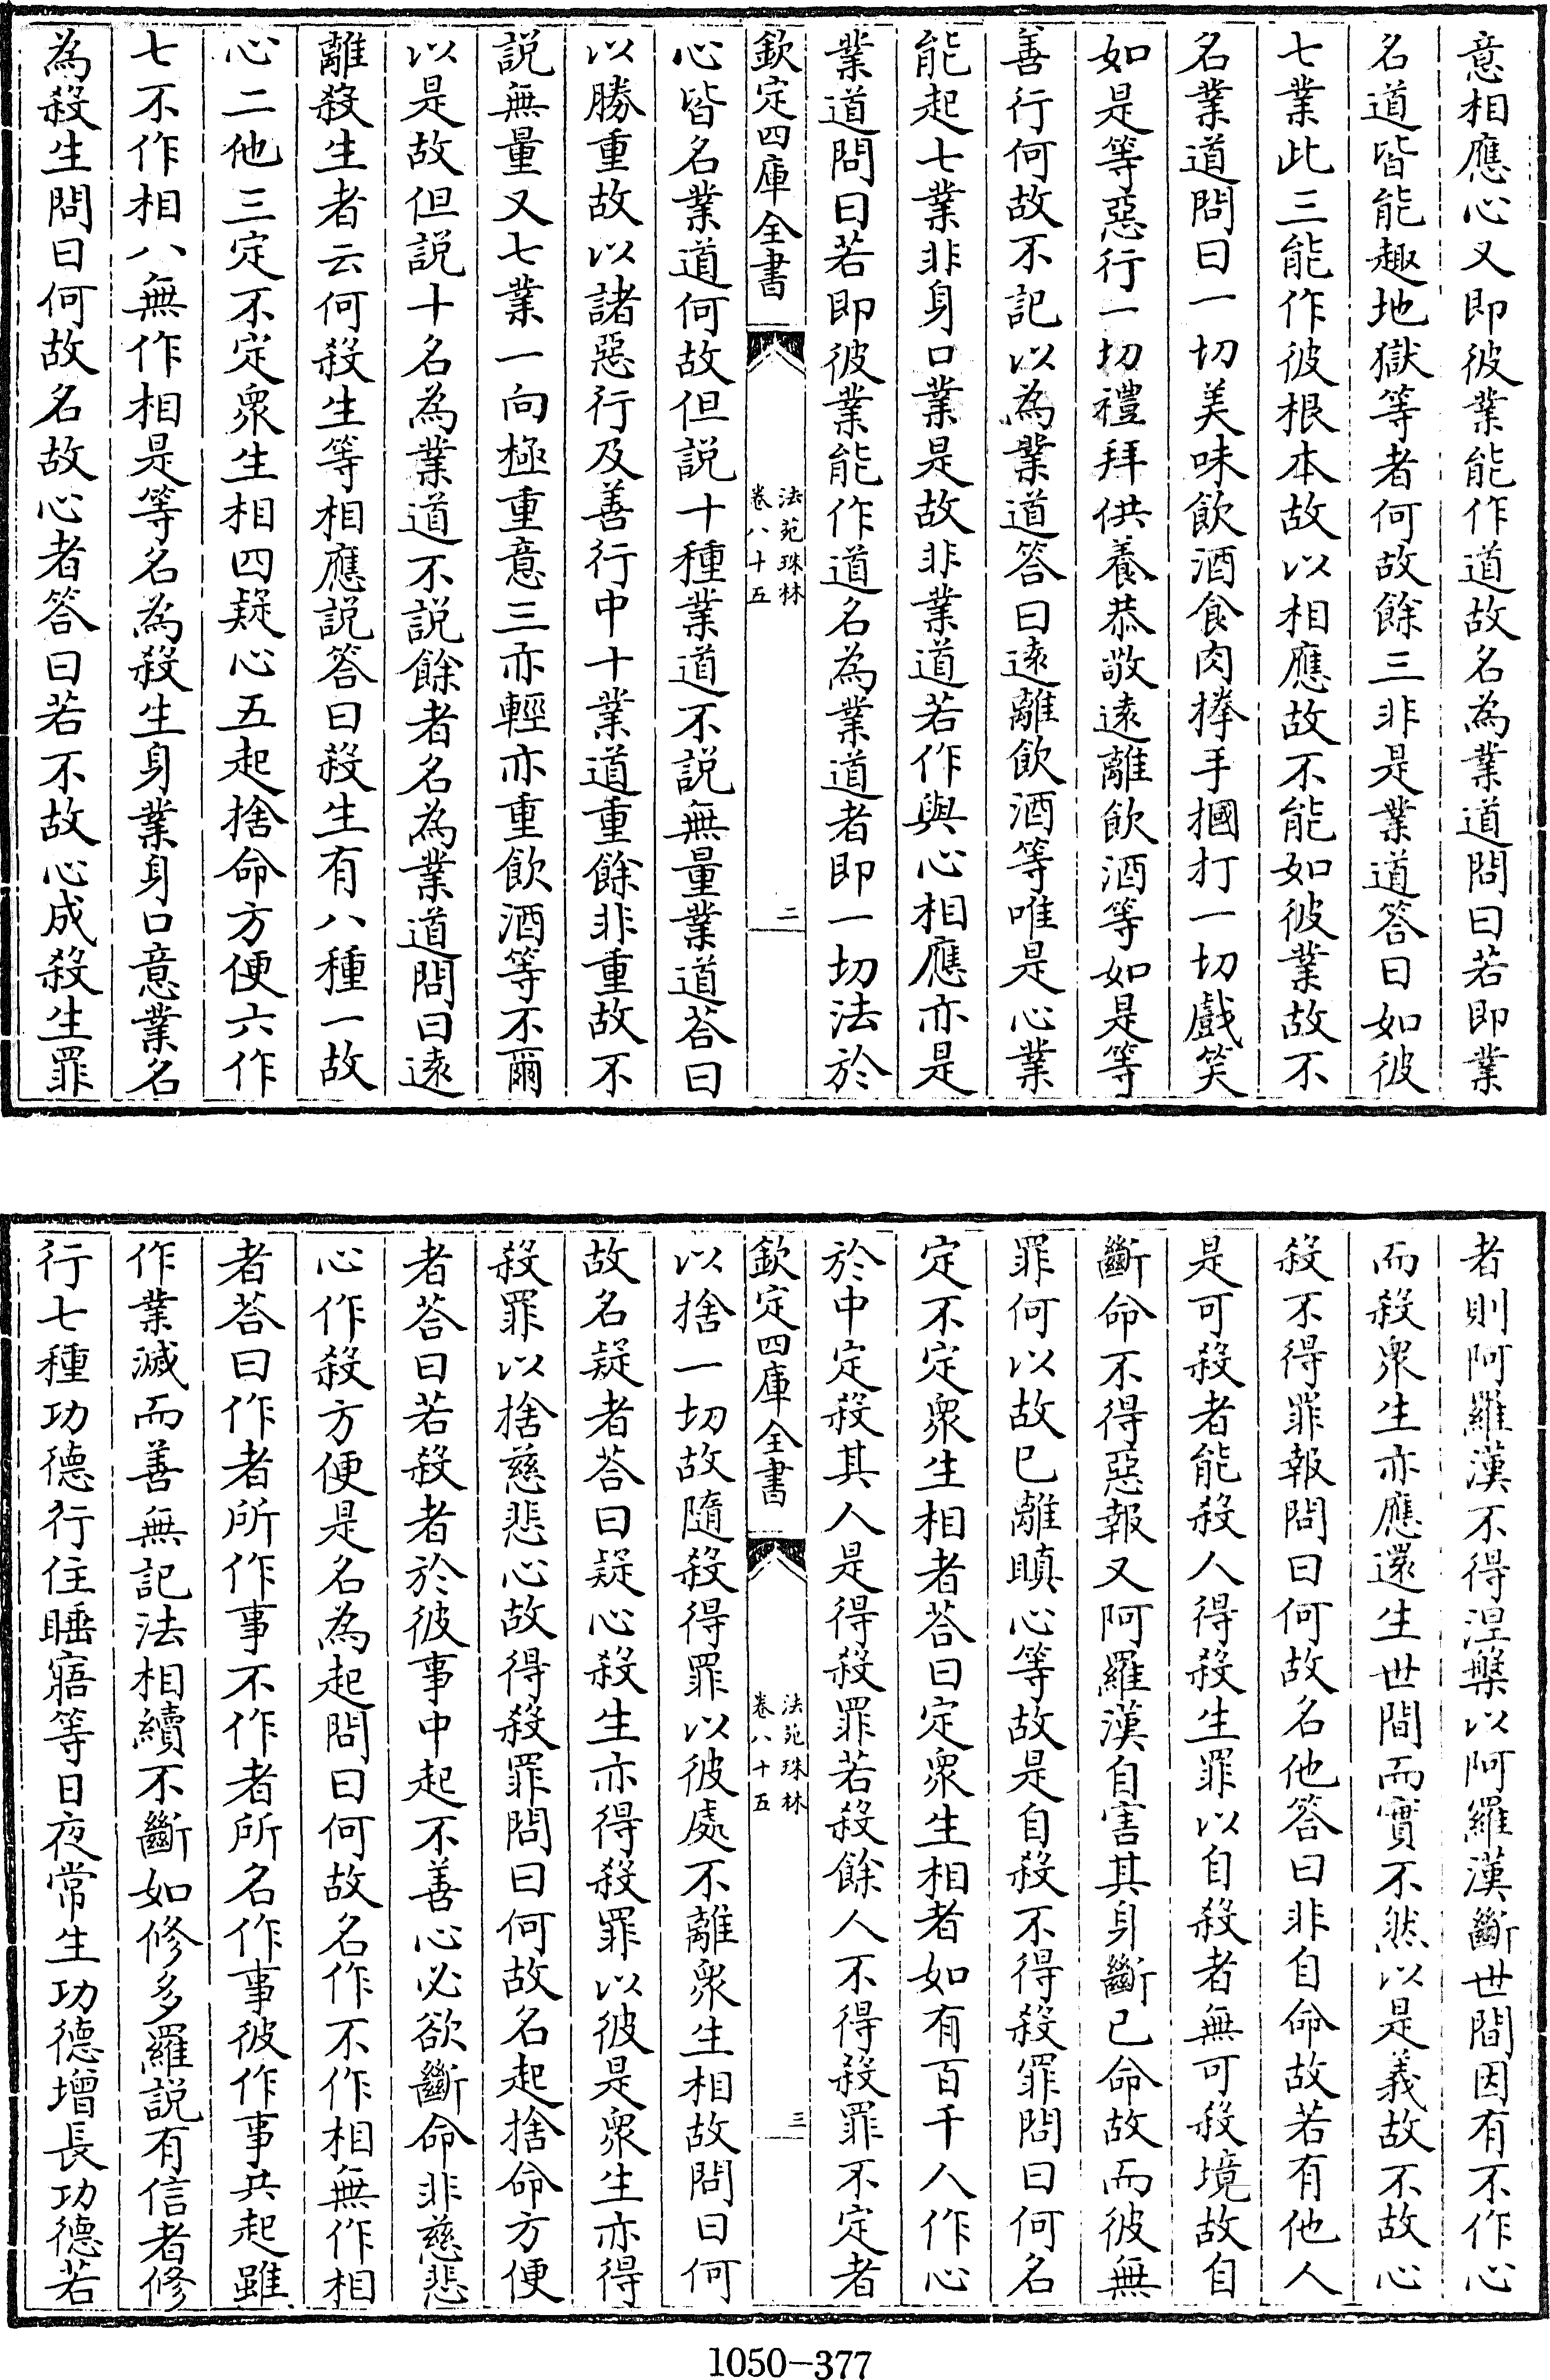 意相應心又即彼業能作道故名為業道問曰若即業
名道皆能趣地獄等者何故餘三非是業道答曰如彼
七業此三能作彼根本故以相應故不能如彼業故不
名業道問曰一切美味飲酒食肉搼手摑打一切戲笑
如是等惡行一切禮拜供養恭敬遠離飲酒等如是等
善行何故不記以為業道答曰遠離飲酒等唯是心業
能起七業非身口業是故非業道若作與心相應亦是
業道問曰若即彼業能作道名為業道者即一切法於
欽定四庫全書
法苑珠林
卷八十五
二
心皆名業道何故但説十種業道不説無量業道荅曰
以勝重故以諸惡行及善行中十業道重餘非重故不
説無量又七業一向極重意三亦輕亦重飲酒等不爾
以是故但説十名為業道不説餘者名為業道問曰遠
離殺生者云何殺生等相應説答曰殺生有八種一故
心二他三定不定衆生相四疑心五起捨命方便六作
七不作相八無作相是等名為殺生身業身口意業名
為殺生問曰何故名故心者答曰若不故心成殺生罪
者則阿羅漢不得涅槃以阿羅漢斷世間因有不作心
而殺衆生亦應還生世間而實不然以是義故不故心
殺不得罪報問曰何故名他答曰非自命故若有他人
是可殺者能殺人得殺生罪以自殺者無可殺境故自
斷命不得惡報又阿羅漢自害其身斷已命故而彼無
罪何以故已離瞋心等故是自殺不得殺罪問曰何名
定不定衆生相者荅曰定衆生相者如有百千人作心
於中定殺其人是得殺罪若殺餘人不得殺罪不定者
欽定四庫全書
法苑珠林
卷八十五
三
以捨一切故隨殺得罪以彼處不離衆生相故問曰何
故名疑者荅曰疑心殺生亦得殺罪以彼是衆生亦得
殺罪以捨慈悲心故得殺罪問曰何故名起捨命方便
者荅曰若殺者於彼事中起不善心必欲斷命非慈悲
心作殺方便是名為起問曰何故名作不作相無作相
者荅曰作者所作事不作者所名作事彼作事共起雖
作業滅而善無記法相續不斷如修多羅説有信者修
行七種功德行住睡寤等日夜常生功德增長功德若
1050-377